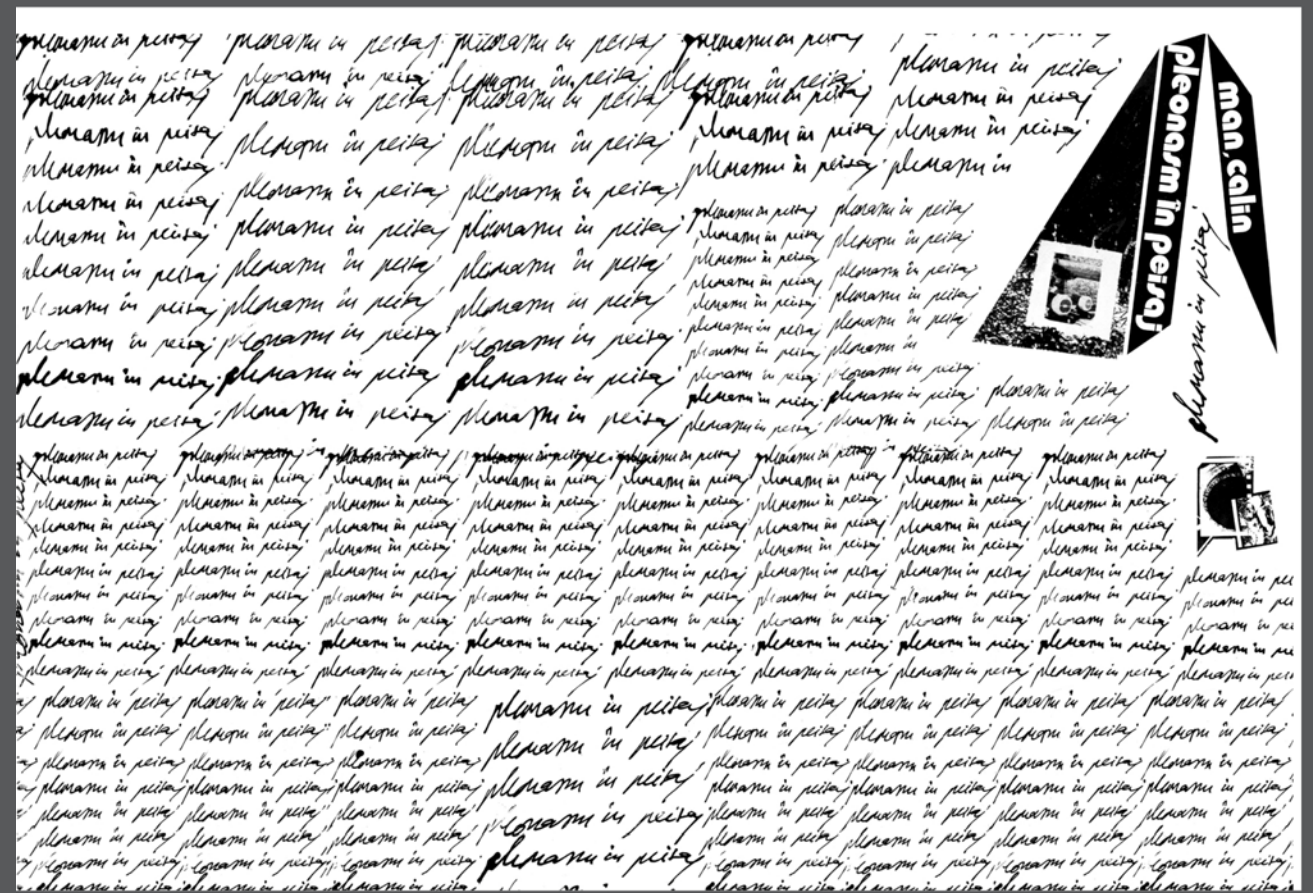 pleonasm în peisaj pleonasm în peisaj pleonasm în peisaj pleonasm în peisaj
pleonasm în peisaj pleonasm în peisaj pleonasm în peisaj pleonasm în peisaj pleonasm în peisaj
pleonasm în peisaj pleonasm în peisaj pleonasm în peisaj pleonasm în peisaj pleonasm în peisaj
pleonasm în peisaj pleonasm în peisaj pleonasm în peisaj pleonasm în peisaj pleonasm în peisaj
pleonasm în peisaj pleonasm în peisaj pleonasm în
pleonasm în peisaj pleonasm în peisaj pleonasm în peisaj
pleonasm în peisaj pleonasm în peisaj pleonasm în peisaj
pleonasm în peisaj pleonasm în peisaj pleonasm în peisaj
pleonasm în peisaj pleonasm în peisaj pleonasm în peisaj
pleonasm în peisaj pleonasm în peisaj pleonasm în peisaj
pleonasm în peisaj pleonasm în peisaj pleonasm în peisaj
pleonasm în peisaj pleonasm în peisaj pleonasm în peisaj
pleonasm în peisaj pleonasm în peisaj
pleonasm în peisaj pleonasm în peisaj
pleonasm în peisaj pleonasm în peisaj
pleonasm în peisaj pleonasm în peisaj
pleonasm în peisaj pleonasm în peisaj
pleonasm în peisaj pleonasm în
pleonasm în peisaj pleonasm în peisaj
pleonasm în peisaj pleonasm în peisaj
pleonasm în peisaj pleonasm în peisaj pleonasm în peisaj
pleonasm în peisaj pleonasm în peisaj pleonasm în peisaj
man, calin
pleonasm în peisaj
pleonasm în peisaj
pleonasm în peisaj pleonasm în peisaj pleonasm în peisaj pleonasm în peisaj pleonasm în peisaj pleonasm în peisaj pleonasm în peisaj pleonasm în peisaj
pleonasm în peisaj pleonasm în peisaj pleonasm în peisaj pleonasm în peisaj pleonasm în peisaj pleonasm în peisaj pleonasm în peisaj pleonasm în peisaj
pleonasm în peisaj pleonasm în peisaj pleonasm în peisaj pleonasm în peisaj pleonasm în peisaj pleonasm în peisaj pleonasm în peisaj pleonasm în peisaj
pleonasm în peisaj pleonasm în peisaj pleonasm în peisaj pleonasm în peisaj pleonasm în peisaj pleonasm în peisaj pleonasm în peisaj pleonasm în peisaj
pleonasm în peisaj pleonasm în peisaj pleonasm în peisaj pleonasm în peisaj pleonasm în peisaj pleonasm în peisaj pleonasm în peisaj pleonasm în peisaj
pleonasm în peisaj pleonasm în peisaj pleonasm în peisaj pleonasm în peisaj pleonasm în peisaj pleonasm în peisaj pleonasm în peisaj pleonasm în peisaj pleonasm în pei
pleonasm în peisaj pleonasm în peisaj pleonasm în peisaj pleonasm în peisaj pleonasm în peisaj pleonasm în peisaj pleonasm în peisaj pleonasm în peisaj pleonasm în pei
pleonasm în peisaj pleonasm în peisaj pleonasm în peisaj pleonasm în peisaj pleonasm în peisaj pleonasm în peisaj pleonasm în peisaj pleonasm în peisaj pleonasm în pei
pleonasm în peisaj pleonasm în peisaj pleonasm în peisaj pleonasm în peisaj pleonasm în peisaj pleonasm în peisaj pleonasm în peisaj pleonasm în peisaj pleonasm în pei
pleonasm în peisaj pleonasm în peisaj pleonasm în peisaj pleonasm în peisaj pleonasm în peisaj pleonasm în peisaj pleonasm în peisaj pleonasm în peisaj pleonasm în peis
pleonasm în peisaj pleonasm în peisaj pleonasm în peisaj pleonasm în peisaj pleonasm în peisaj pleonasm în peisaj pleonasm în peisaj pleonasm în peisaj
pleonasm în peisaj pleonasm în peisaj pleonasm în peisaj pleonasm în peisaj pleonasm în peisaj pleonasm în peisaj pleonasm în peisaj pleonasm în peisaj
pleonasm în peisaj pleonasm în peisaj pleonasm în peisaj pleonasm în peisaj pleonasm în peisaj pleonasm în peisaj pleonasm în peisaj pleonasm în peisaj
pleonasm în peisaj pleonasm în peisaj pleonasm în peisaj pleonasm în peisaj pleonasm în peisaj pleonasm în peisaj pleonasm în peisaj
pleonasm în peisaj pleonasm în peisaj pleonasm în peisaj pleonasm în peisaj pleonasm în peisaj pleonasm în peisaj pleonasm în peisaj pleonasm în peisaj
pleonasm în peisaj pleonasm în peisaj pleonasm în peisaj pleonasm în peisaj pleonasm în peisaj pleonasm în peisaj pleonasm în peisaj
pleonasm în peisaj pleonasm în peisaj pleonasm în peisaj pleonasm în peisaj pleonasm în peisaj pleonasm în peisaj pleonasm în peisaj pleonasm în peisaj